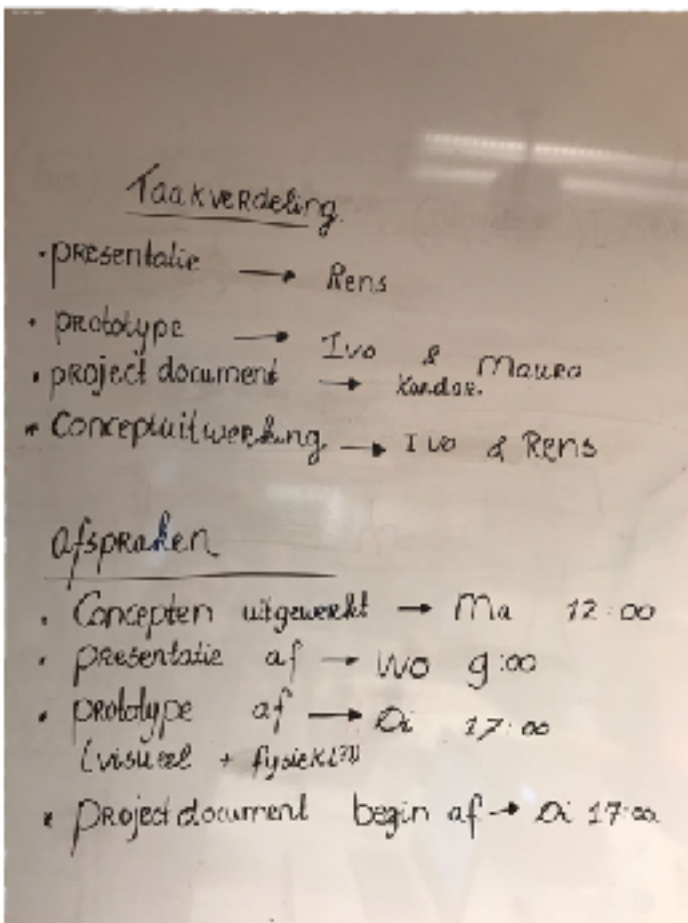 Taakverdeling.
· presentatie → Rens
· prototype → Ivo & Maura
· project document → 
* Conceptuitwerking → Ivo & Rens
afspraken
· Concepten uitgewerkt → Ma 12:00
· presentatie af → Wo 9:00
· prototype af → Di 17:00
(visueel + fysiek(?))
* Project document begin af → Di 17:00